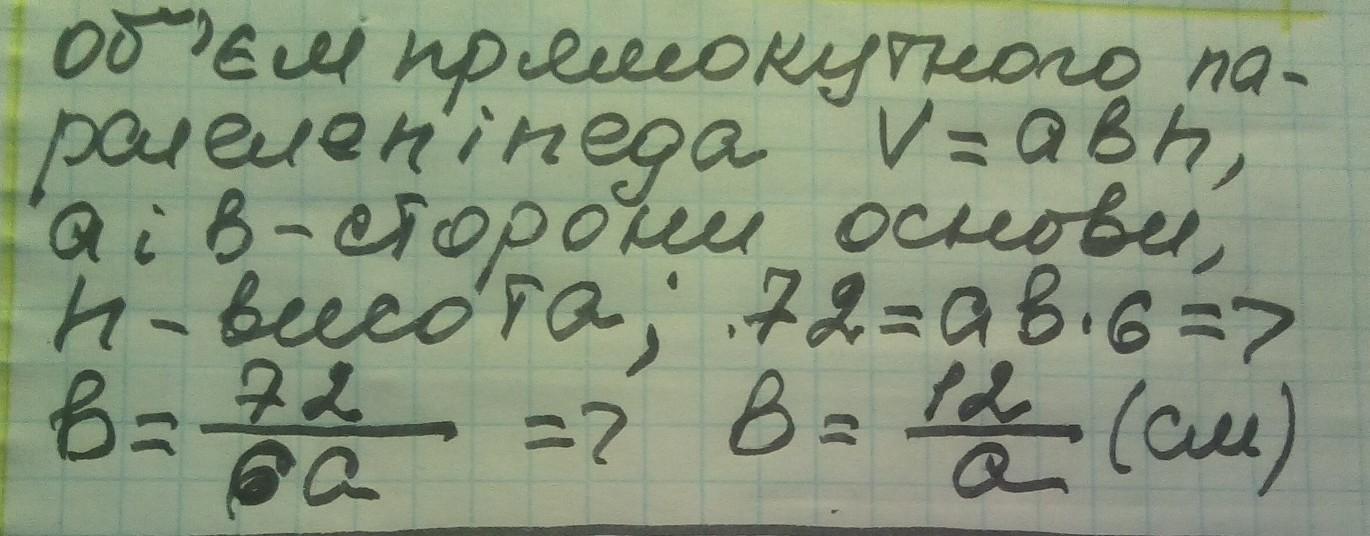 об'єм прямокутного па-
ралелепіпеда V = aвh,
a і в - сторони основи,
h - висота; 72 = aв · 6 =>
в = 72/6a => в = 12/a (см)